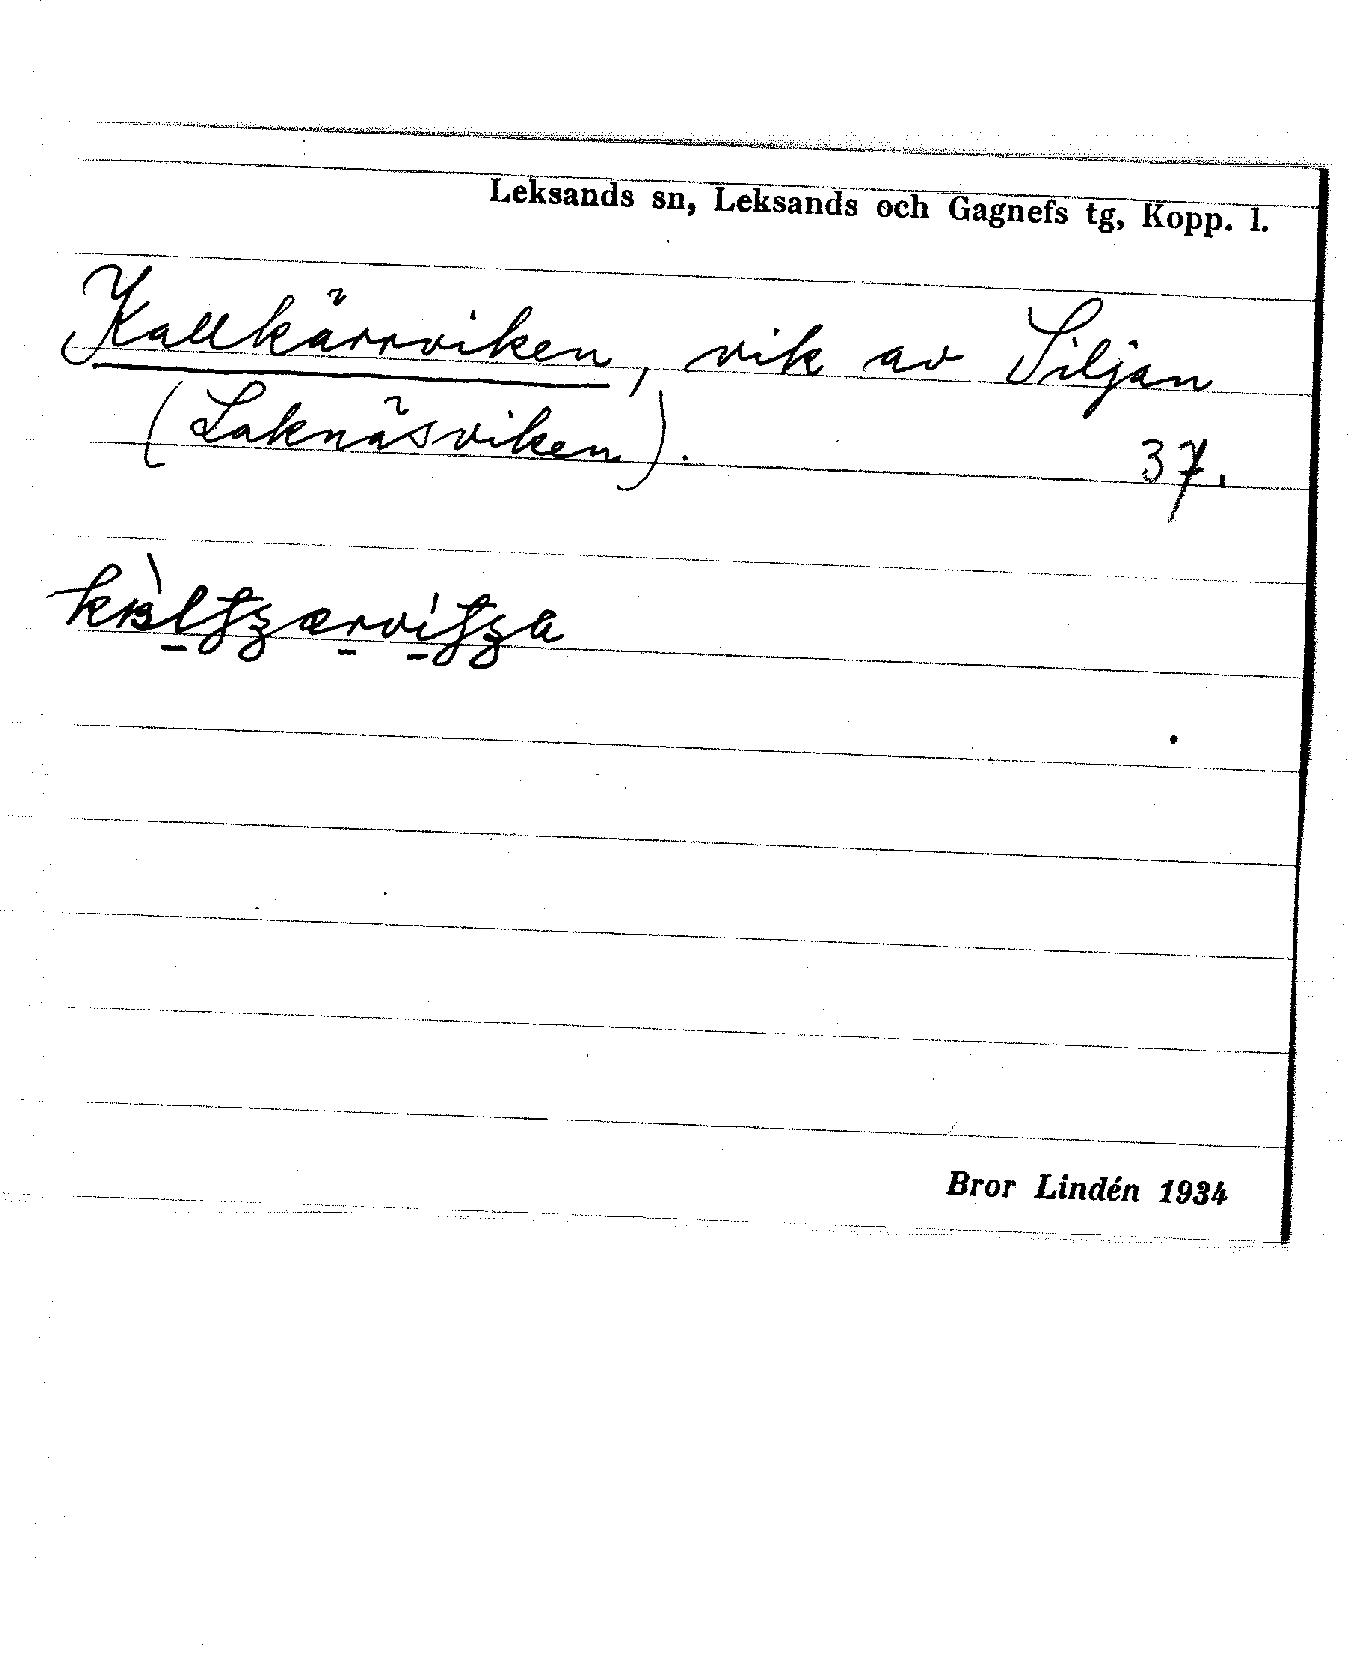 Leksands sn, Leksands och Gagnefs tg, Kopp. l.
Kallkärrviken, vik av Siljan
(Laknäsviken).
37.
Bror Lindén 1934